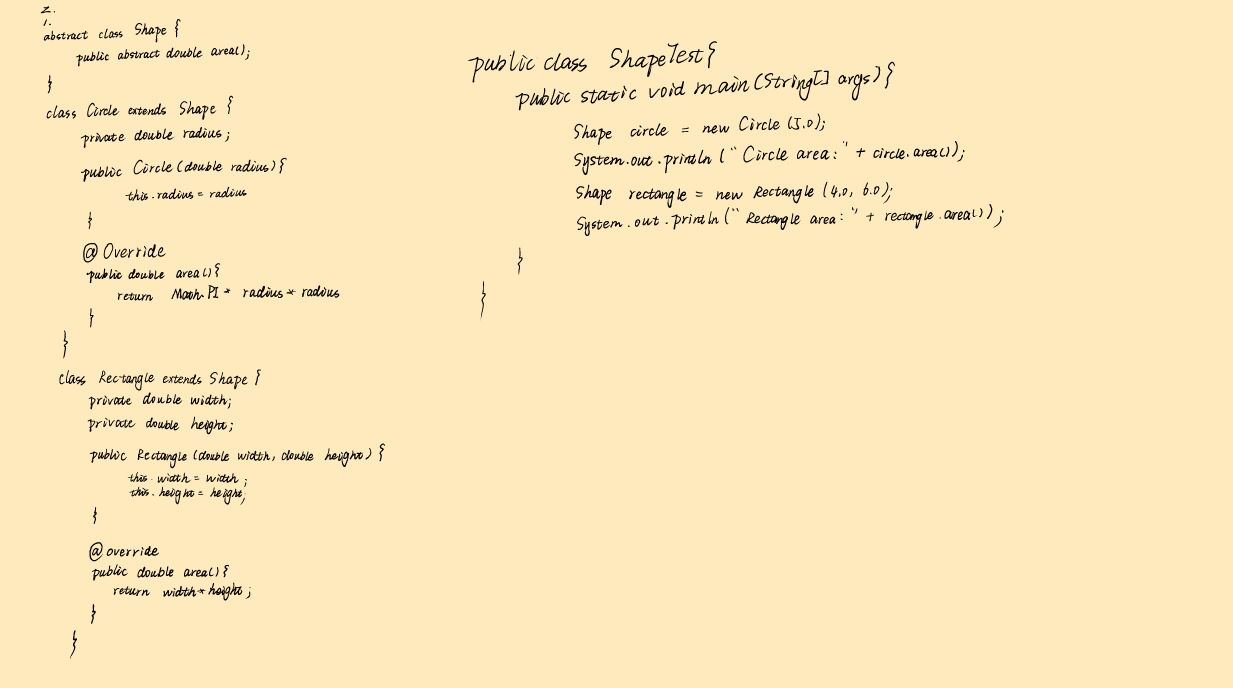 2.
1.
abstract class Shape {
public abstract double area();
}
class Circle extends Shape {
private double radius;
public Circle (double radius) {
this.radius = radius
}
@Override
public double area() {
return Math.PI * radius * radius
}
}
class Rectangle extends Shape {
private double width;
private double height;
public Rectangle (double width, double height) {
this.width = width;
this.height = height;
}
@override
public double area() {
return width * height;
}
}
public class ShapeTest {
public static void main (String[] args) {
Shape circle = new Circle (5.0);
System.out.println ("Circle area:" + circle.area());
Shape rectangle = new Rectangle (4.0, 6.0);
System.out.println ("Rectangle area:" + rectangle.area());
}
}